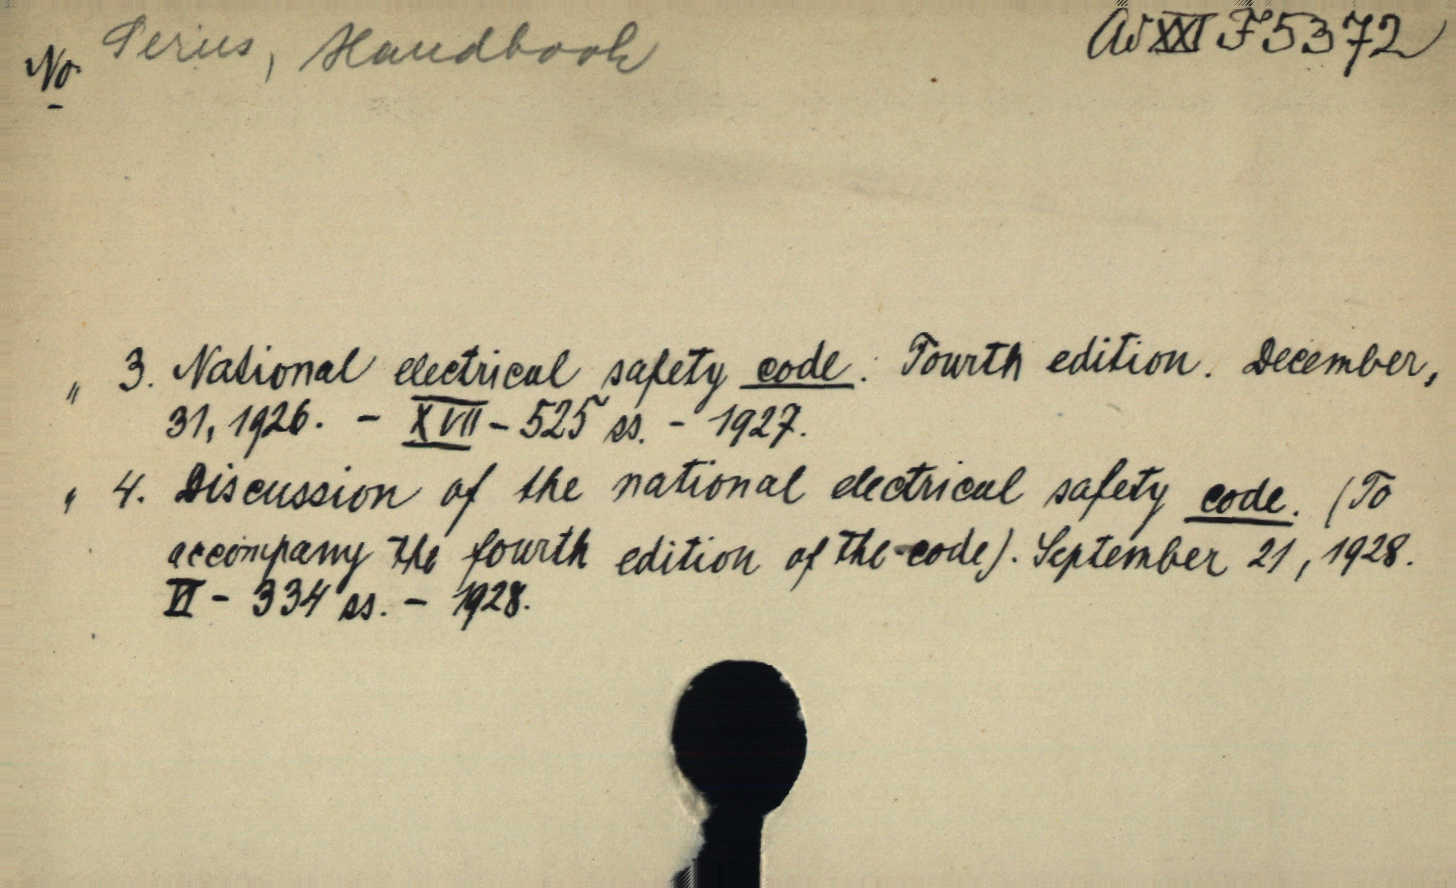 No Serius, Handbook Av XXI F 5372
" 3. National electrical safety code. Fourth edition. December,
31, 1926. - XVII - 525 ss. - 1927.
" 4. Discussion of the national electrical safety code. (To
accompany the fourth edition of the code). September 21, 1928.
VI - 334 ss. - 1928.